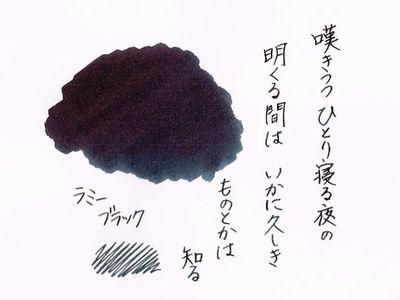 嘆きつつ ひとり寝る夜の
明くる間は いかに久しき
ものとかは
知る
ラミー
ブラック